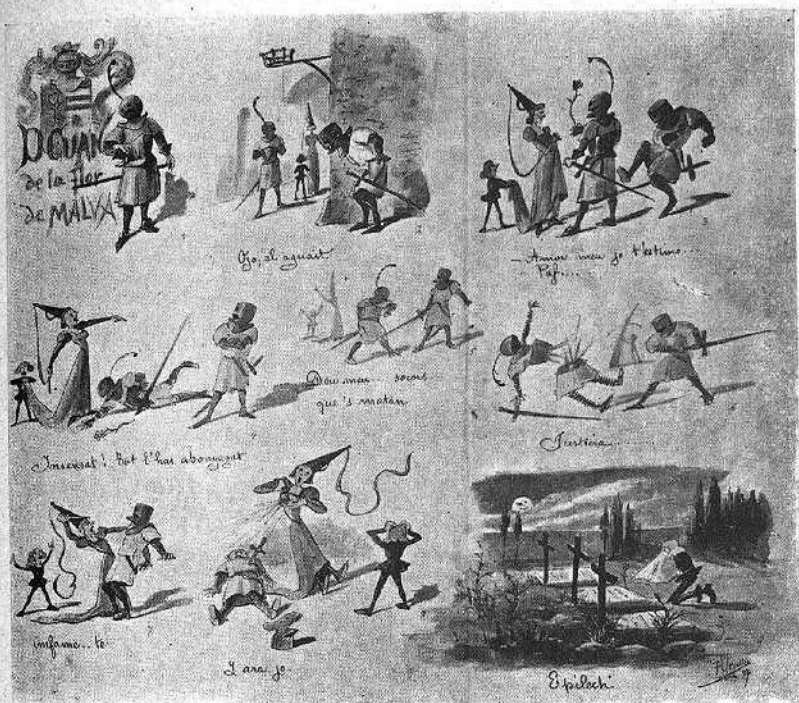 D. GUAN
de la flor
de MALVA
1
Ojo, al aguait
2
— Amor meu jo t'estimo...
Paf....
3
Insensat! tot l'has abonyegat
4
Deu meu... socors
que 's matan
5
6
infame.. té
Y ara jo
Epilech
97